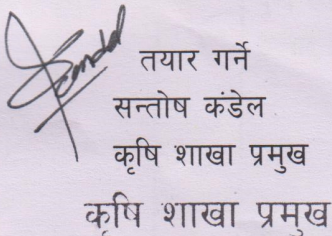 तयार गर्ने
सन्तोष कंडेल
कृषि शाखा प्रमुख
कृषि शाखा प्रमुख